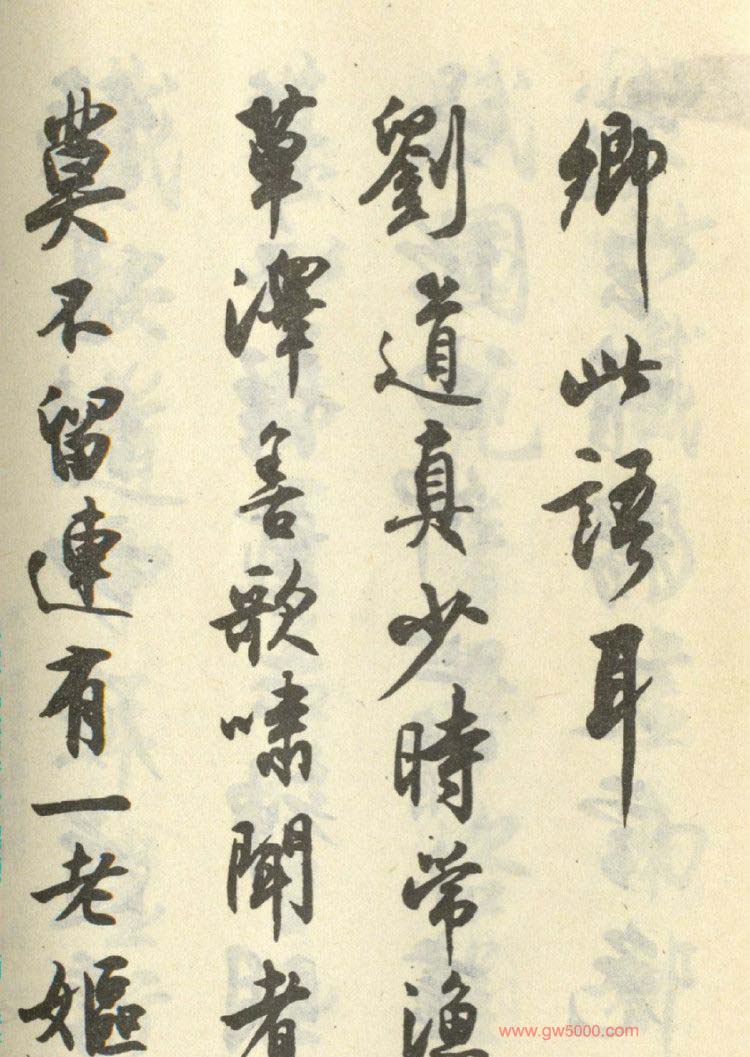 卿此語耳
劉道真少時常漁
草澤善歌嘯聞者
莫不留連有一老嫗
www.gw5000.com